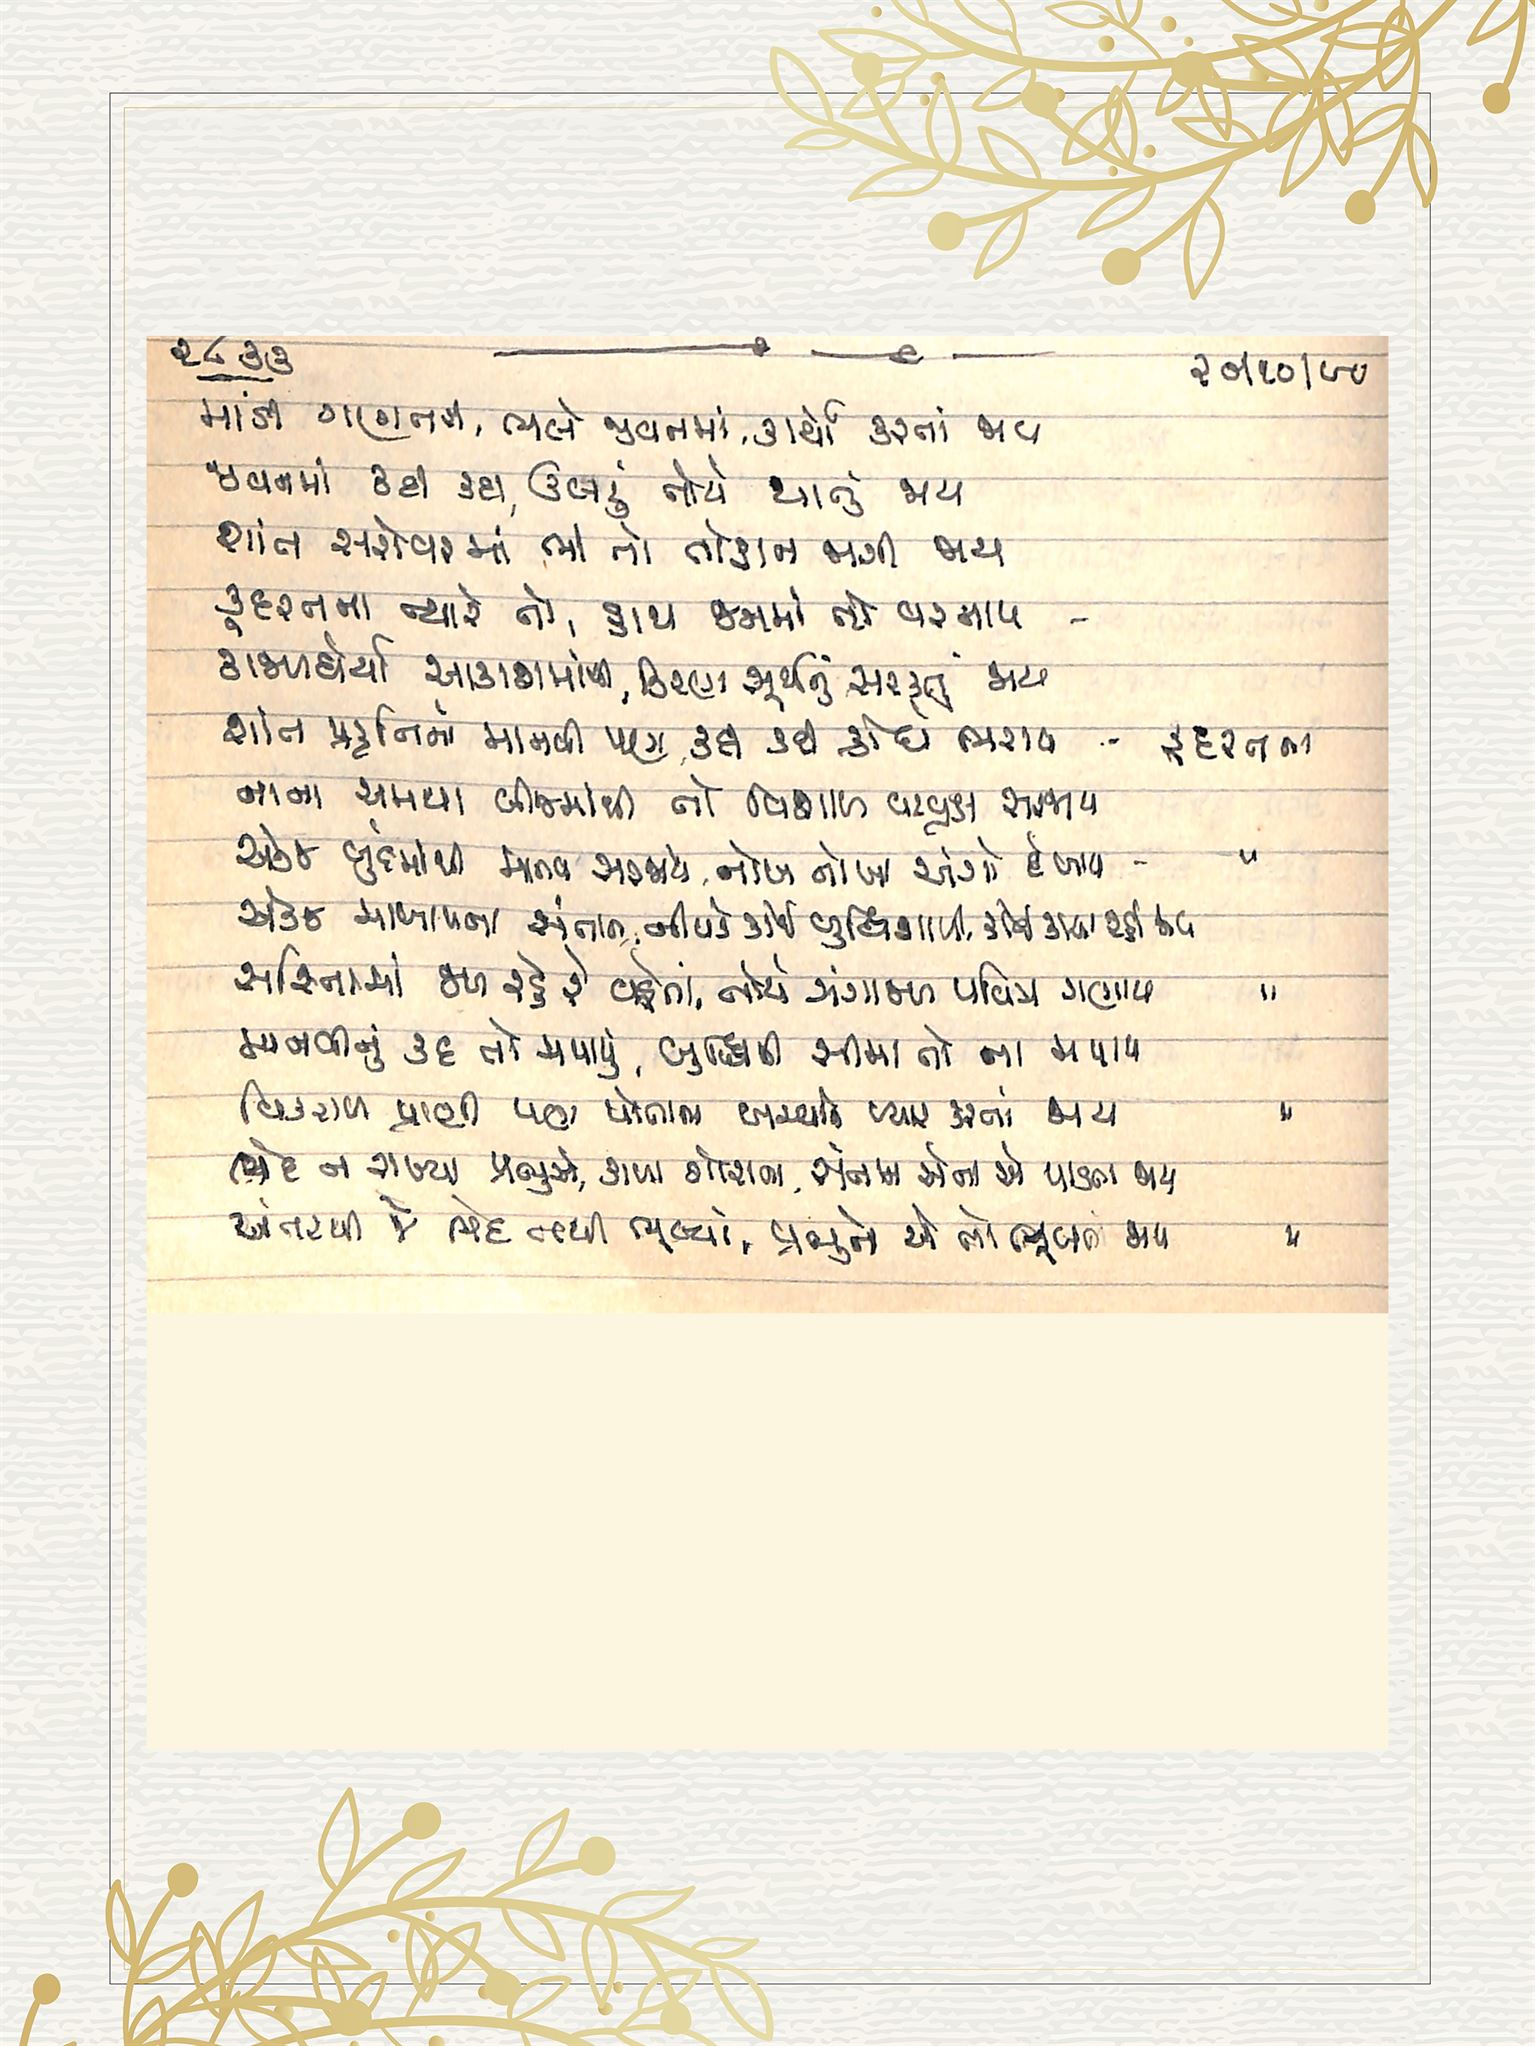 ૨૮૩૩
૨૭/૧૦/૯૦
માંડી ગણતરી, ભલે જીવનમાં, કાર્યો કરતાં જાય
જીવનમાં કદી કદી, ઉલટું તોયે થાતું જાય
શાંત સરોવરમાં ભી તો તોફાન જાગી જાય
કુદરતના ન્યારે તો, હાથ જગમાં તો વરતાય -
કાજળઘેર્યા આકાશમાંથી, કિરણ સૂર્યનું સરકતું જાય
શાંત પ્રકૃતિનો માનવી પણ, કદી કદી ક્રોધે ભરાય - કુદરતના
નાના અમથા બીજમાંથી તો વિશાળ વટવૃક્ષ સરજાય
એકજ બુંદમાંથી માનવ સરજાયે, નોખ નોખા અંગો દેખાય - "
એકજ માબાપના સંતાન, નીપજે કોઈ બુદ્ધિશાળી, કોઈ કાચા રહી જાય
સરિતામાં જળ રહે રે વહેતાં, તોયે ગંગાજળ પવિત્ર ગણાય "
માનવીનું કદ તો મપાયું, બુદ્ધિની સીમા તો ના મપાય
વિકરાળ પ્રાણી પણ પોતાના બચ્ચાંને પ્યાર કરતાં જાય "
ભેદ ન રાખ્યા પ્રભુએ, કાળા ગોરાના, સંતાન એના એ પાડતા જાય
અંતરથી જે ભેદ નથી ભૂલ્યાં, પ્રભુને એ તો ભૂલતા જાય "